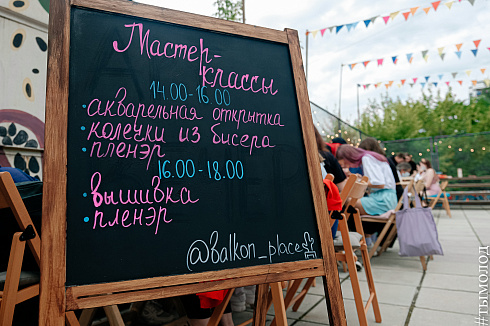 Мастер-
классы
14.00-16.00
· акварельная открытка
· колечки из бисера
· пленэр
16.00-18.00
· вышивка
· пленэр
@balkon_place
#ТЫМОЛОД